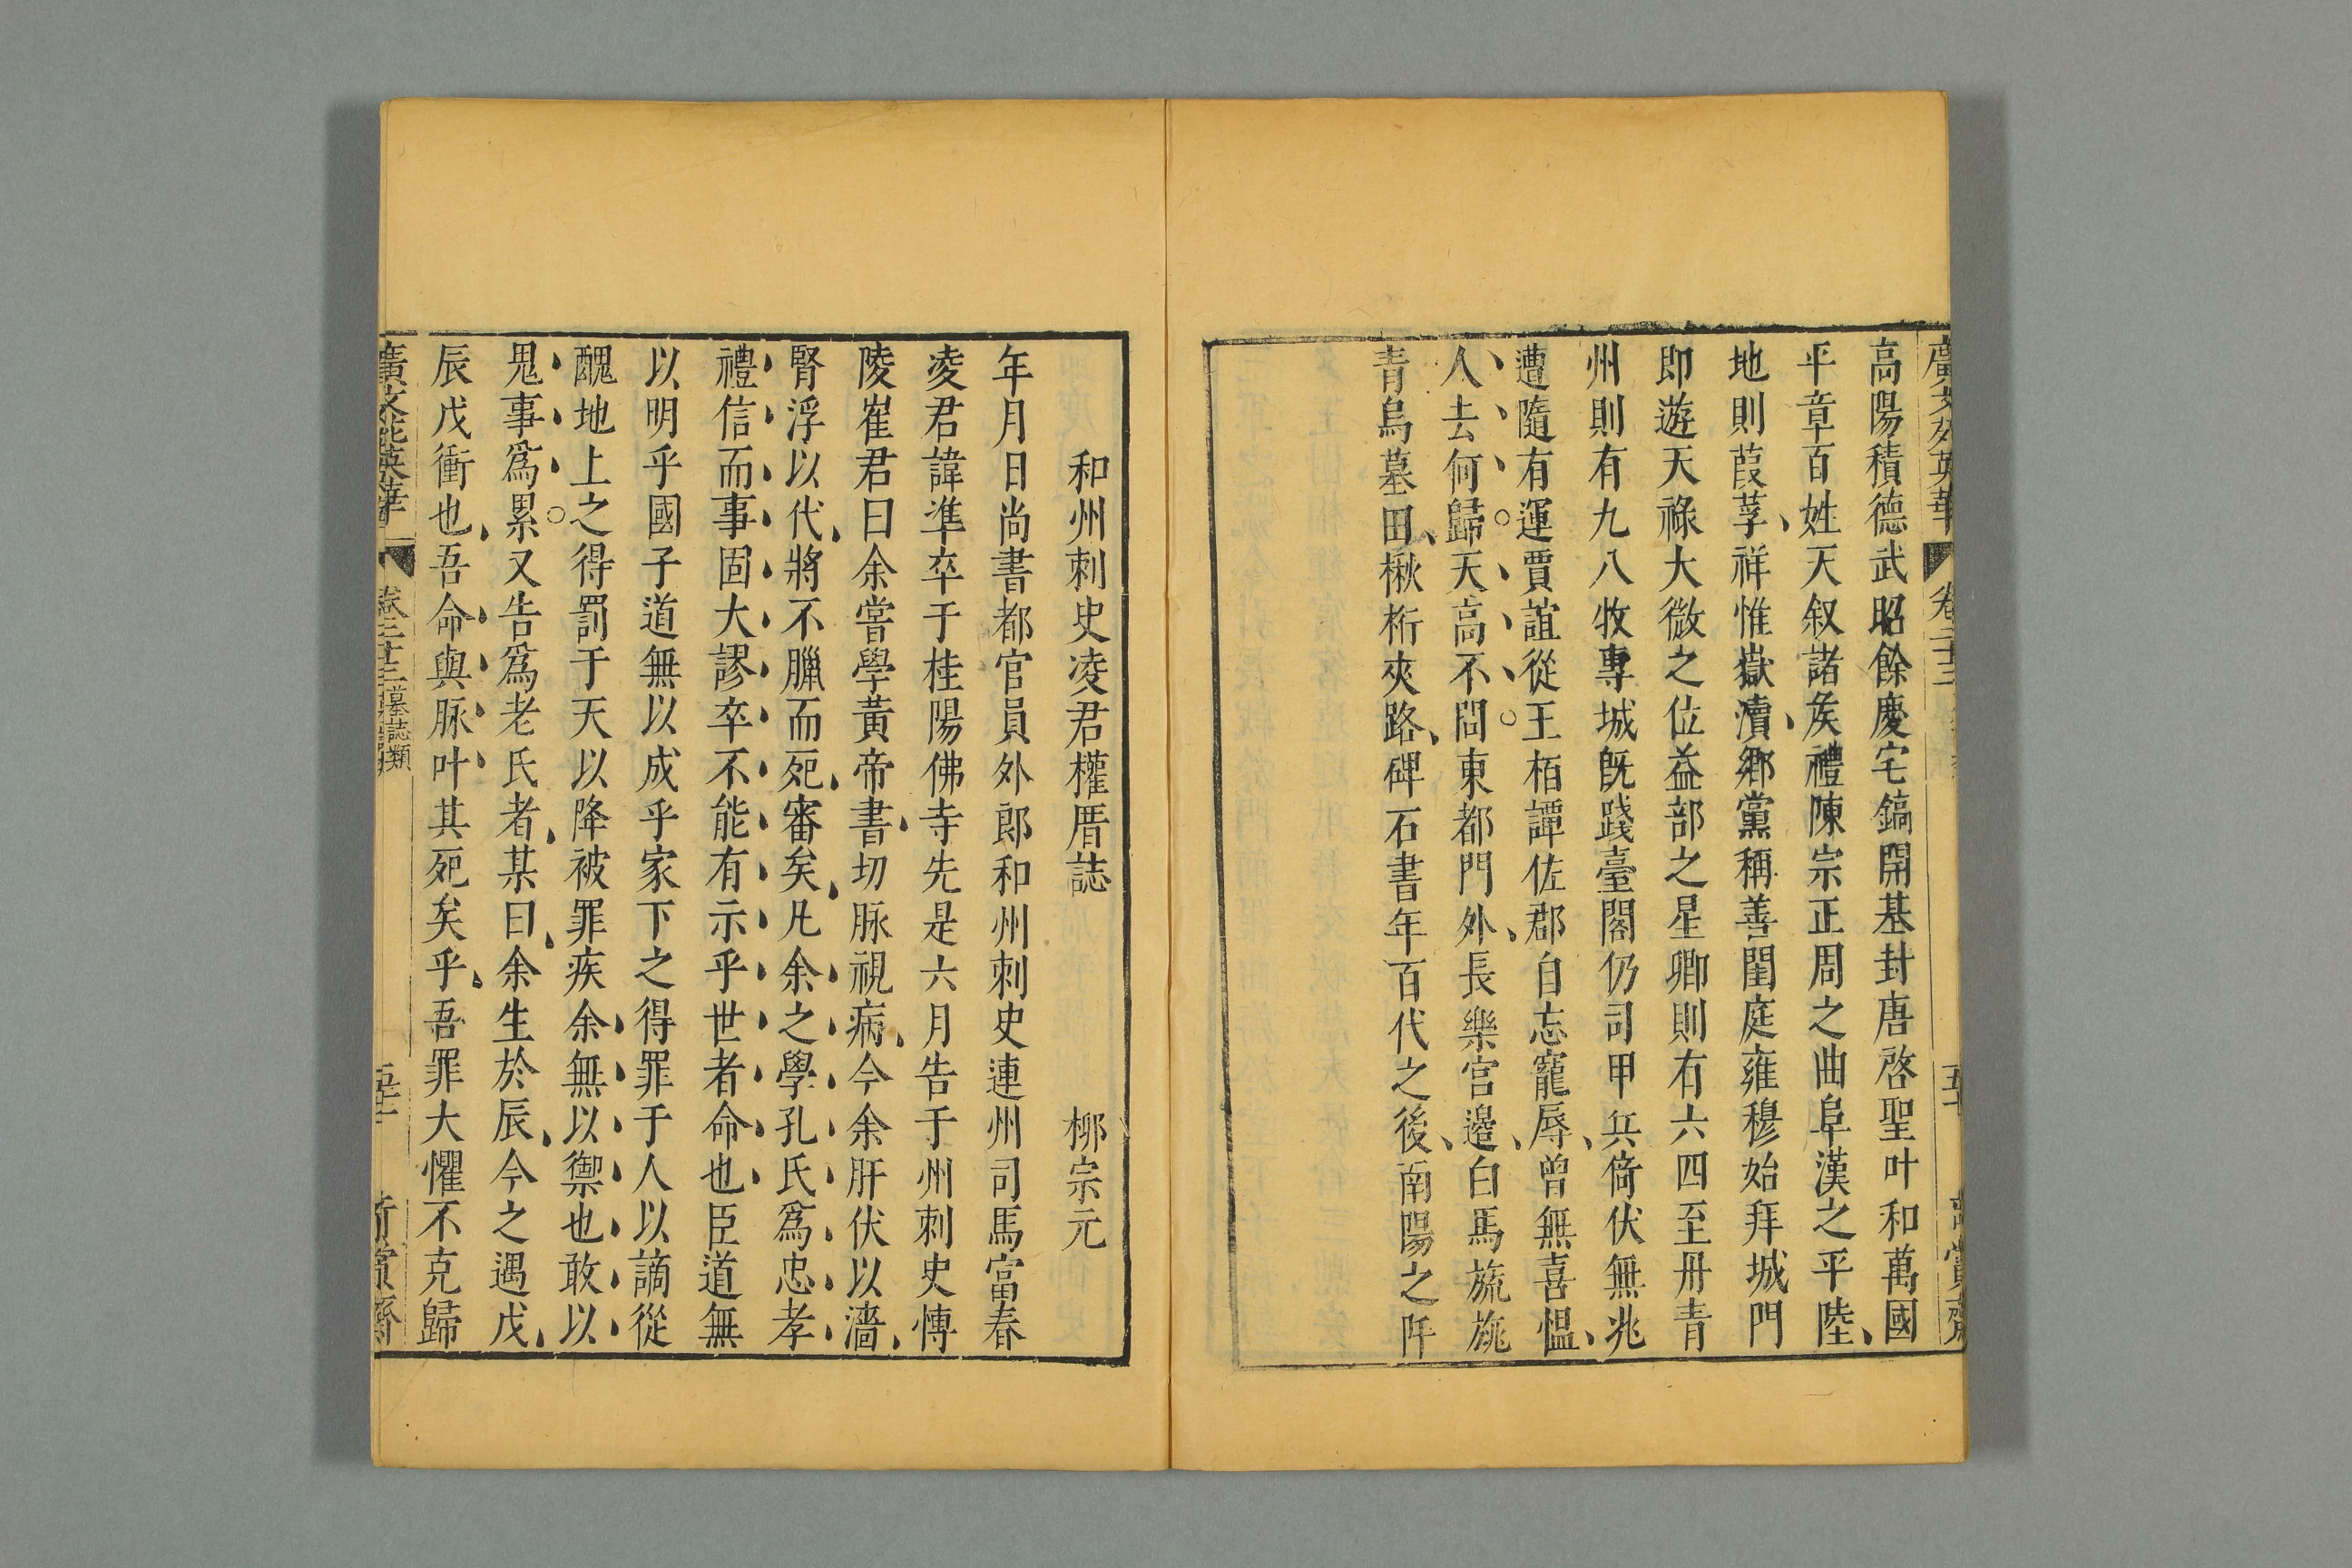 高陽積德武昭餘慶宅鎬開基封唐啓聖叶和萬國
平章百姓天叙諸矦禮陳宗正周之曲阜漢之平陸
地則葭莩祥惟嶽瀆鄉黨稱善閨庭雍穆始拜城門
即遊天祿大微之位益部之星卿則有六四至丹青
州則有九八牧專城旣踐臺閣仍司甲兵倚伏無兆
遭隨有運賈誼從王栢譚佐郡自忘寵辱曾無喜慍
人去何歸天高不問東都門外長樂宮邊白馬旒旐
青烏墓田楸桁夾路碑石書年百代之後南陽之阡
和州刺史凌君權厝誌 柳宗元
年月日尚書都官員外郎和州刺史連州司馬富春
凌君諱準卒于桂陽佛寺先是六月告于州刺史博
陵崔君曰余嘗學黃帝書切脉視病今余肝伏以濇
腎浮以代將不臘而死審矣凡余之學孔氏爲忠孝
禮信而事固大謬卒不能有示乎世者命也臣道無
以明乎國子道無以成乎家下之得罪于人以謫從
醜地上之得罰于天以降被罪疾余無以禦也敢以
鬼事爲累又告爲老氏者某曰余生於辰今之遇戊
辰戊衝也吾命與脉叶其死矣乎吾罪大懼不克歸
廣文苑英華 卷二十三 墓誌類